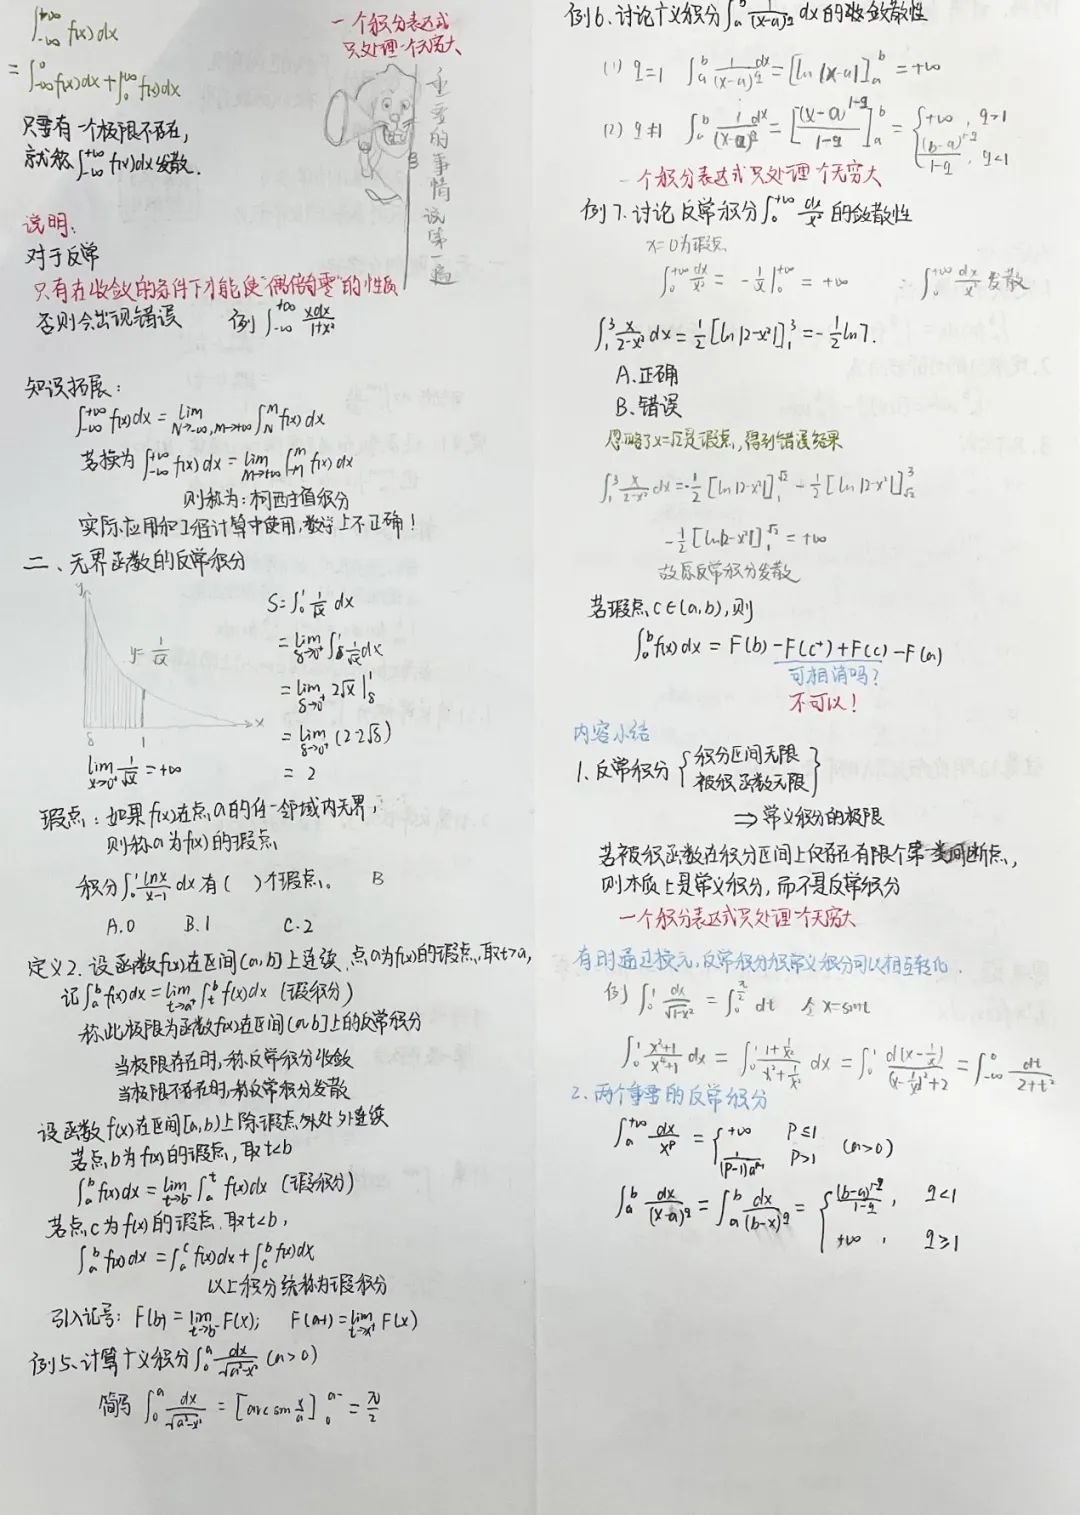 ∫_{-∞}^{+∞} f(x)dx
= ∫_{-∞}^{0} f(x)dx + ∫_{0}^{+∞} f(x)dx
只要有一个极限不存在,
就称 ∫_{-∞}^{+∞} f(x)dx 发散.
一个积分表达式
只处理一个无穷大
重要的事情说第一遍
说明:
对于反常
只有在收敛的条件下才能使“偶倍奇零”的性质
否则会出现错误 例 ∫_{-∞}^{+∞} xdx/(1+x²)
知识拓展:
∫_{-∞}^{+∞} f(x)dx = lim_{N→-∞, M→+∞} ∫_{N}^{M} f(x)dx
若换为 ∫_{-∞}^{+∞} f(x)dx = lim_{M→+∞} ∫_{-M}^{M} f(x)dx
则称为:柯西主值积分
实际应用和工程计算中使用,数学上不正确!
二、无界函数的反常积分
y
y = 1/√x
δ 1 x
lim_{x→0⁺} 1/√x = +∞
S = ∫_{0}^{1} 1/√x dx
= lim_{δ→0⁺} ∫_{δ}^{1} 1/√x dx
= lim_{δ→0⁺} 2√x |_{δ}^{1}
= lim_{δ→0⁺} (2-2√δ)
= 2
瑕点:如果f(x)在点a的任一邻域内无界,
则称a为f(x)的瑕点
积分 ∫_{0}^{1} lnx/(x-1) dx 有( )个瑕点。 B
A.0 B.1 C.2
定义2. 设函数f(x)在区间(a,b]上连续,点a为f(x)的瑕点,取t>a,
记 ∫_{a}^{b} f(x)dx = lim_{t→a⁺} ∫_{t}^{b} f(x)dx (瑕积分)
称此极限为函数f(x)在区间(a,b]上的反常积分
当极限存在时,称反常积分收敛
当极限不存在时,称反常积分发散
设函数f(x)在区间[a,b)上除瑕点外处处连续
若点b为f(x)的瑕点,取t<b
∫_{a}^{b} f(x)dx = lim_{t→b⁻} ∫_{a}^{t} f(x)dx (瑕积分)
若点c为f(x)的瑕点,取t<b,
∫_{a}^{b} f(x)dx = ∫_{a}^{c} f(x)dx + ∫_{c}^{b} f(x)dx
以上积分统称为瑕积分
引入记号: F(b) = lim_{t→b⁻} F(x); F(a+) = lim_{t→x⁺} F(x)
例5、计算广义积分 ∫_{0}^{a} dx/√(a²-x²) (a>0)
简写 ∫_{0}^{a} dx/√(a²-x²) = [arcsin x/a]_{0}^{a-} = π/2
例6.讨论广义积分 ∫_{a}^{b} 1/(x-a)^q dx的收敛散性
(1) q=1 ∫_{a}^{b} 1/(x-a)^q dx = [ln|x-a|]_{a}^{b} = +∞
(2) q≠1 ∫_{a}^{b} 1/(x-a)^q dx = [(x-a)^{1-q}/(1-q)]_{a}^{b} = { +∞, q>1
(b-a)^{1-q}/(1-q), q<1
一个积分表达式只处理一个无穷大
例7.讨论反常积分 ∫_{0}^{+∞} dx/x² 的敛散性
x=0为瑕点
∫_{0}^{+∞} dx/x² = -1/x |_{0}^{+∞} = +∞ ∴ ∫_{0}^{+∞} dx/x² 发散
∫_{1}^{3} x/(2-x²) dx = 1/2 [ln|2-x²|]_{1}^{3} = -1/2 ln7.
A.正确
B.错误
忽略了x=√2是瑕点,得到错误结果
∫_{1}^{3} x/(2-x²) dx = -1/2 [ln|2-x²|]_{1}^{√2} - 1/2 [ln|2-x²|]_{√2}^{3}
-1/2 [ln|2-x²|]_{1}^{√2} = +∞
故原反常积分发散
若瑕点c∈(a,b),则
∫_{a}^{b} f(x)dx = F(b) - F(c⁺) + F(c) - F(a)
可相消吗?
不可以!
内容小结
1.反常积分 { 积分区间无限
被积函数无限 }
⇒ 常义积分的极限
若被积函数在积分区间上仅存在有限个第一类间断点,
则本质上是常义积分,而不是反常积分
一个积分表达式只处理一个无穷大
有时通过换元,反常积分和常义积分可以相互转化.
例 ∫_{0}^{1} dx/√(1-x²) = ∫_{0}^{π/2} dt 令 x=sint
∫_{0}^{1} (x²+1)/(x⁴+1) dx = ∫_{0}^{1} (1+1/x²)/(x²+1/x²) dx = ∫_{0}^{1} d(x-1/x)/((x-1/x)²+2) = ∫_{-∞}^{0} dt/(2+t²)
2.两个重要的反常积分
∫_{a}^{+∞} dx/x^p = { +∞ P≤1
1/((P-1)a^{p-1}) P>1 (a>0)
∫_{a}^{b} dx/(x-a)^q = ∫_{a}^{b} dx/(b-x)^q = { (b-a)^{1-q}/(1-q), q<1
+∞, q≥1